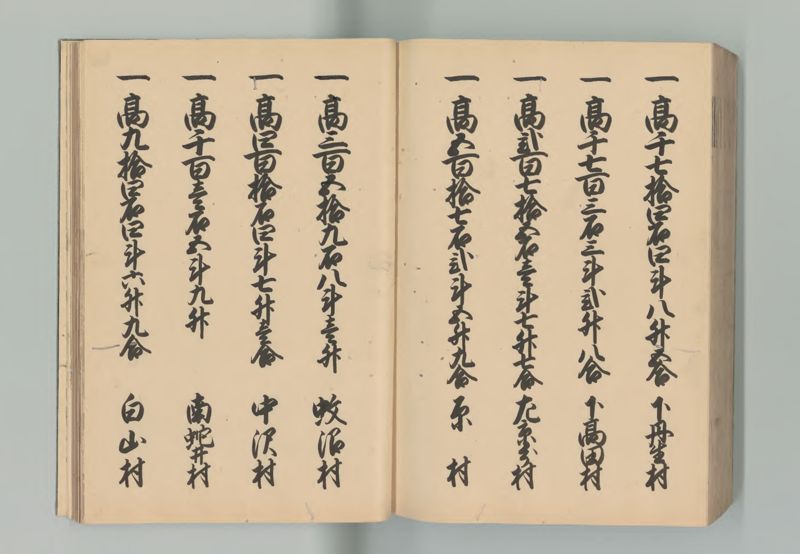 一 高千七拾四石四斗八升五合 下丹生村
一 高千七百三石三斗弐升八合 下高田村
一 高弐百七拾五石壱斗七升七合 村
一 高五百拾七石弐斗五升九合 原村
一 高三百五拾九石八斗壱升 蚊沼村
一 高四百拾石四斗七升壱合 中沢村
一 高千百壱石五斗九升 南蛇井村
一 高九拾四石四斗六升九合 白山村